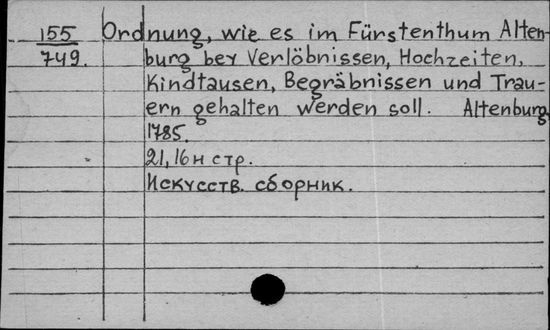 155 Ordnung, wie es im Fürstenthum Alten-
749. burg bey Verlöbnissen, Hochzeiten,
Kindtausen, Begräbnissen und Trau-
ern gehalten werden soll. Altenburg,
1785.
21, 16 н стр.
Искусств. сборник.